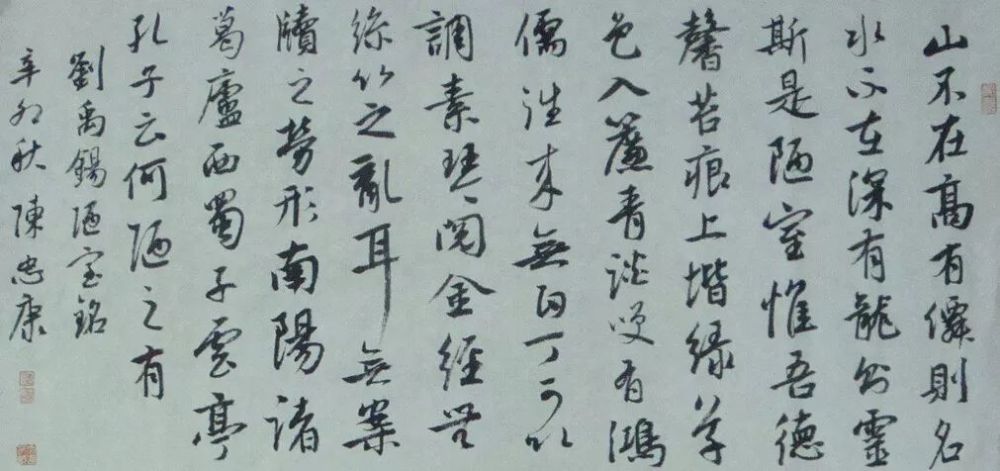 山不在高有僊則名
水不在深有龍則靈
斯是陋室惟吾德
馨苔痕上堦緑草
色入簾青談笑有鴻
儒往来無白丁可以
調素琴閲金經無
絲竹之亂耳無案
牘之勞形南陽諸
葛廬西蜀子雲亭
孔子云何陋之有
劉禹錫陋室銘
辛卯秋陳忠康